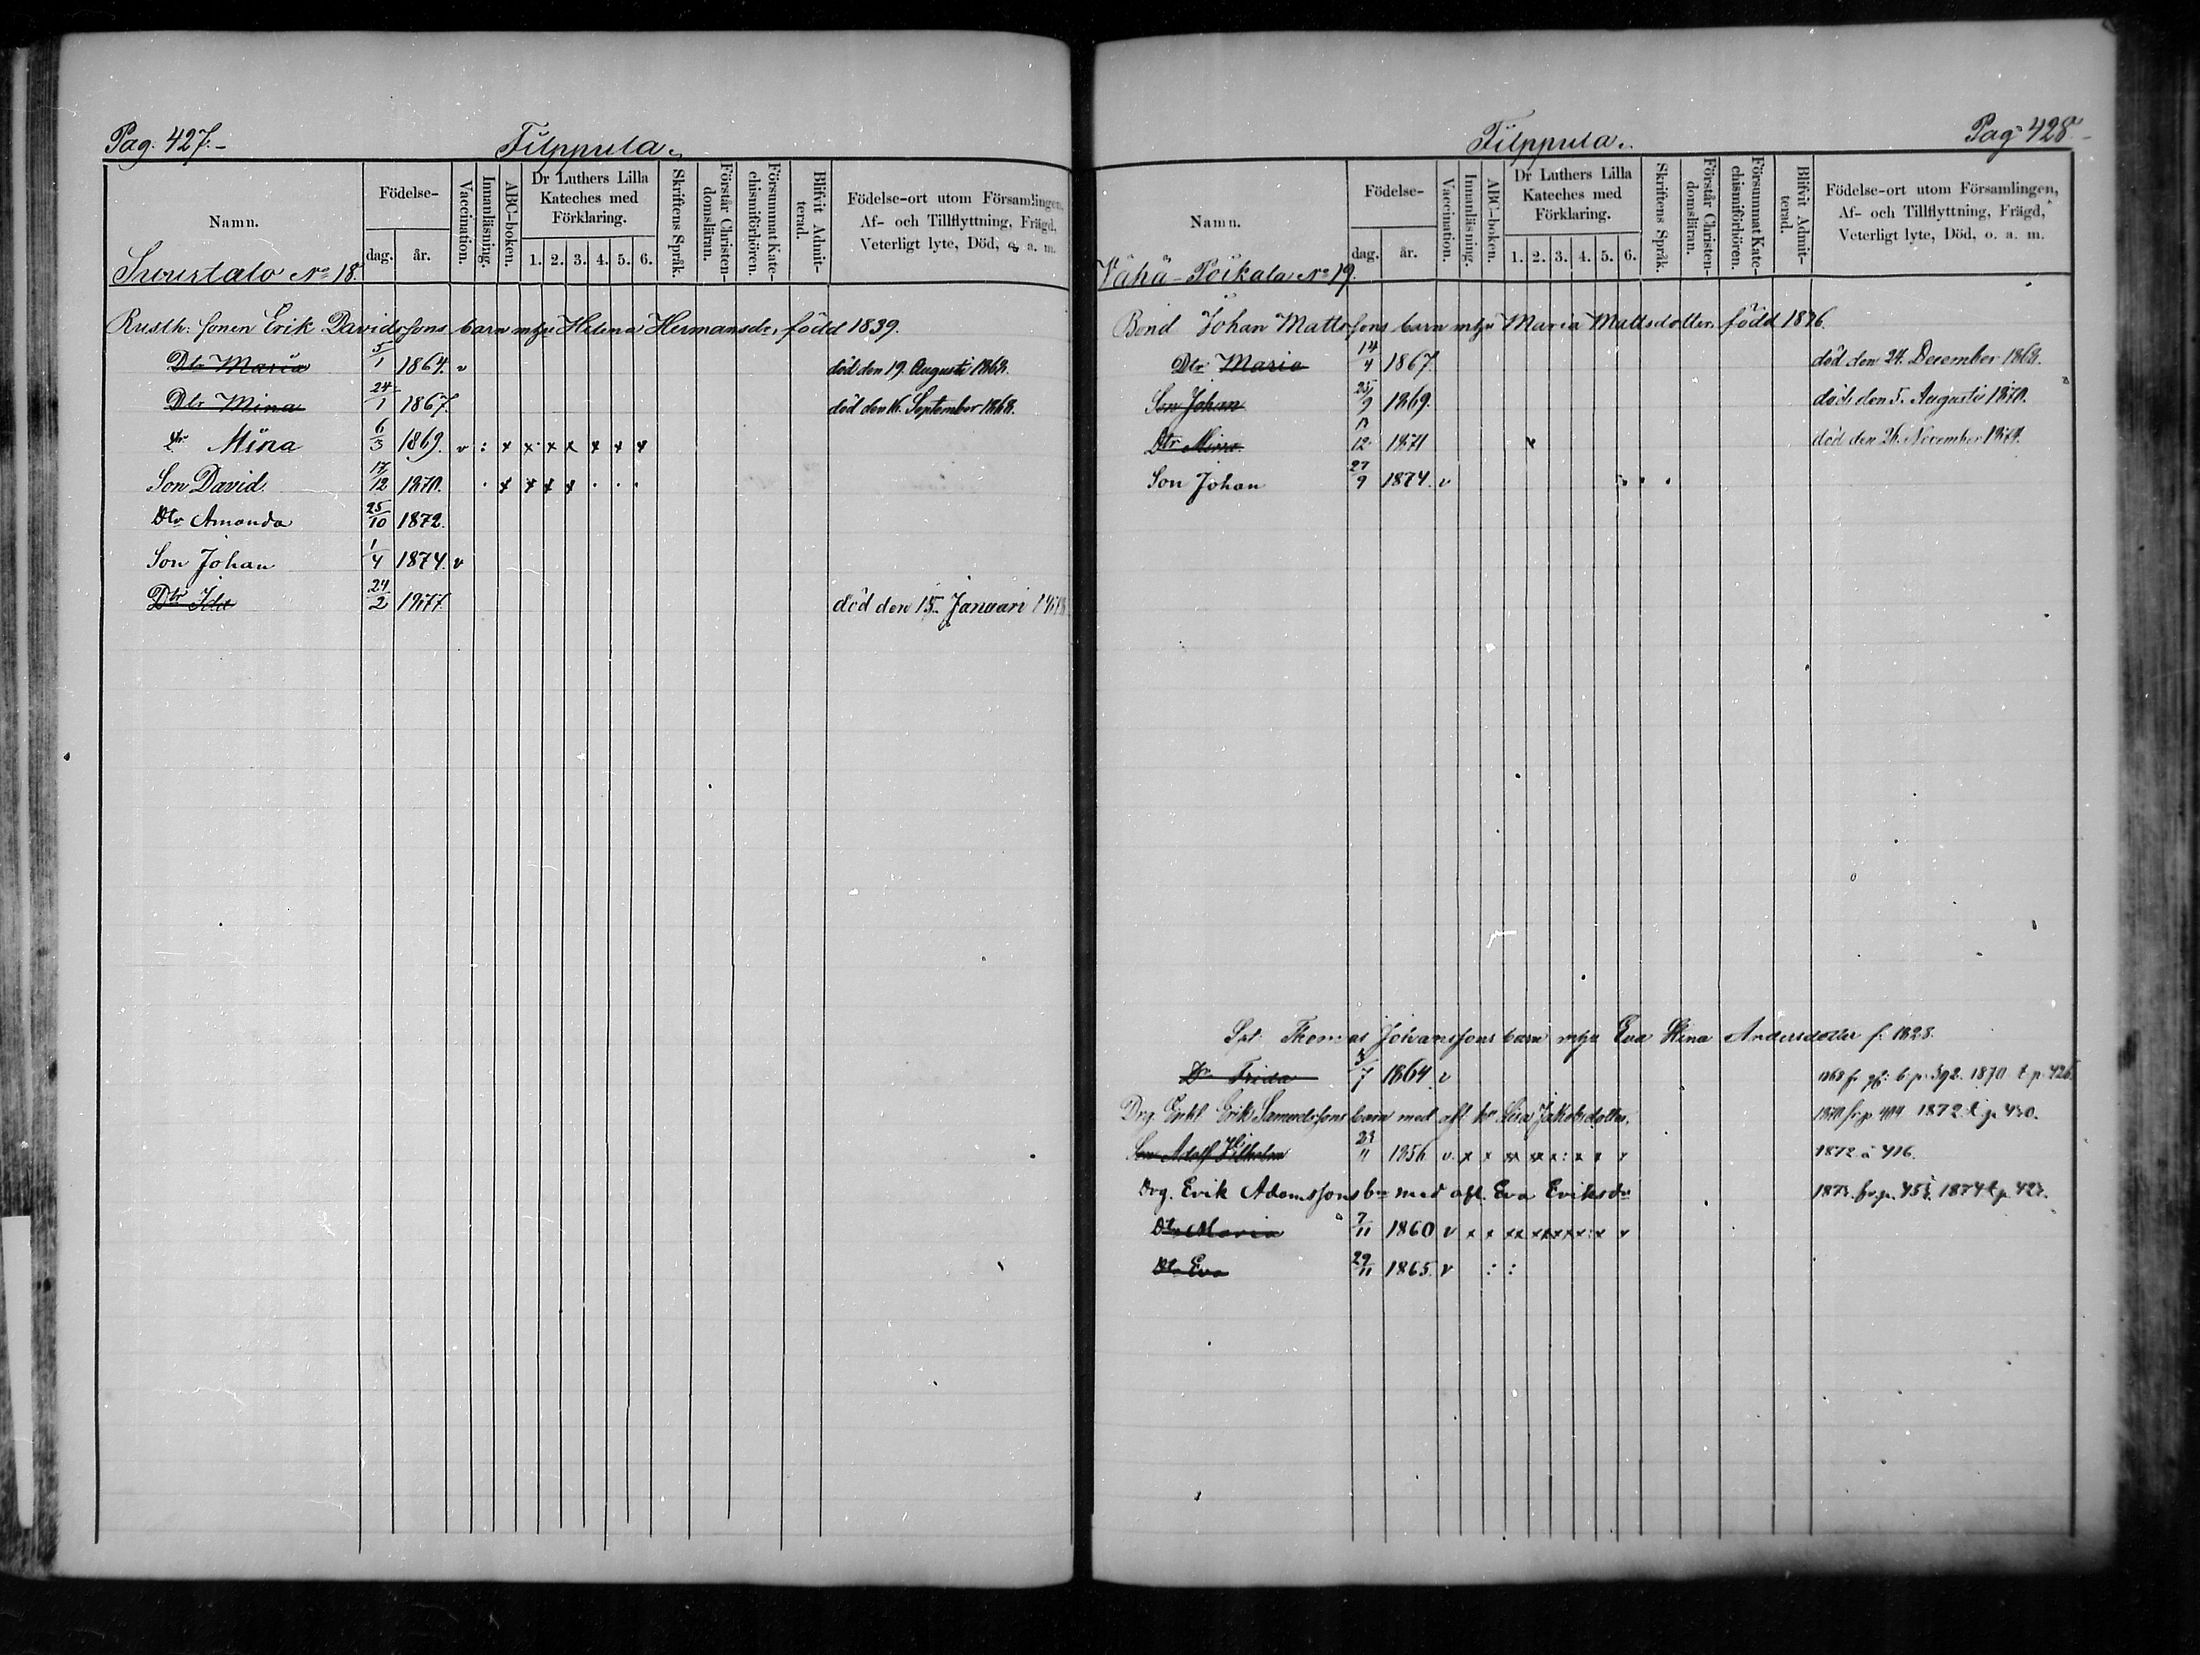 Pag. 427.
Filppula.
Namn.
Födelse-
dag.
år.
Vaccination.
Innanläsning.
ABC-boken.
Dr Luthers Lilla Kateches med Förklaring.
1. 2. 3. 4. 5. 6.
Skriftens Språk.
Förstår Christendomsläran.
Försummat Katechismiförhören.
Blifvit Admitterad.
Födelse-ort utom Församlingen, Af- och Tillflyttning, Frägd, Veterligt lyte, Död, o. a. m.
No 18.
Rusth. sonen Erik Davidssons barn m. h. Helena Hermansdr, född 1839.
Dtr Maria 5/1 1864. v död den 19. Augusti 1868.
Dtr Mina 24/1 1867. död den 16. September 1868.
Dtr Mina 6/3 1869. v : x x x x x x x
Son David. 17/12 1870. . x x x x . . .
Dtr Amanda 25/10 1872.
Son Johan 1/4 1874. v
Dtr Ida 24/2 1877 död den 15. Januari 1878
Pag. 428.
Filppula.
Namn.
Födelse-
dag.
år.
Vaccination.
Innanläsning.
ABC-boken.
Dr Luthers Lilla Kateches med Förklaring.
1. 2. 3. 4. 5. 6.
Skriftens Språk.
Förstår Christendomsläran.
Försummat Katechismiförhören.
Blifvit Admitterad.
Födelse-ort utom Församlingen, Af- och Tillflyttning, Frägd, Veterligt lyte, Död, o. a. m.
Vähä-Poikala No 19.
Bond Johan Mattssons barn m. h. Maria Mattsdotter, född 1846.
Dtr Maria 14/4 1867. död den 24. December 1868.
Son Johan 25/9 1869. död den 5. Augusti 1870.
Dtr Mina 12 1871 x död den 26. November 1874.
Son Johan 27/9 1874. v
Spt. Thomas Johanssons barn m. h. Eva Stina Andersdotter f. 1828.
Dr Frida 3/7 1864. v 1868 fr. p. 392. 1870 t. p. 426.
Drg. Erik Samuelssons barn med afl. h. Lisa Jakobsdotter. 1870 fr. p. 404 1872 t. p. 430.
Son Adolf Vilhelm 23/11 1856 v. x x xx xx x: x x x 1872 å 416.
Drg. Erik Adamssons b. med afl. Eva Eriksdr 1873. fr. p. 453. 1874 t. p. 423.
Dtr Maria 7/11 1860 v x x xx x x x x x : x x
Dtr Eva 29/11 1865. v : :